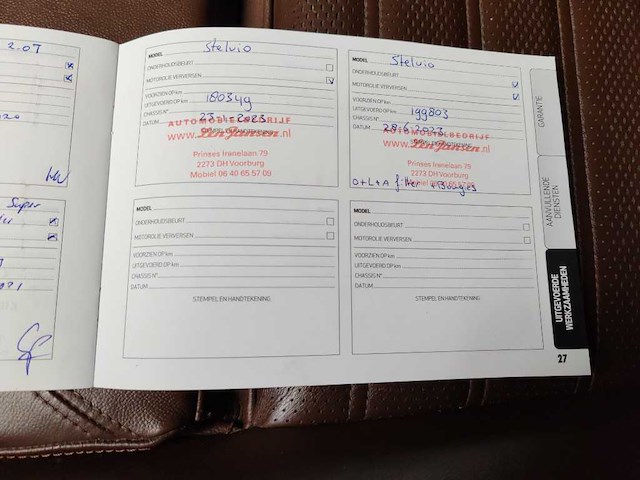 2.0T
Super
MODEL Stelvio
ONDERHOUDSBEURT
MOTOROLIE VERVERSEN
VOORZIEN OP km
UITGEVOERD OP km 180349
CHASSIS N°
DATUM
AUTOMOBIELBEDRIJF
.nl
Prinses Irenelaan 79
2273 DH Voorburg
Mobiel 06 40 65 57 09
MODEL Stelvio
ONDERHOUDSBEURT
MOTOROLIE VERVERSEN
VOORZIEN OP km
UITGEVOERD OP km 199803
CHASSIS N°
DATUM 28.6.2023
AUTOMOBIELBEDRIJF
.nl
Prinses Irenelaan 79
2273 DH Voorburg
Mobiel 06 40 65 57 09
O+L+A filter + Bougies
MODEL
ONDERHOUDSBEURT
MOTOROLIE VERVERSEN
VOORZIEN OP km
UITGEVOERD OP km
CHASSIS N°
DATUM
STEMPEL EN HANDTEKENING
MODEL
ONDERHOUDSBEURT
MOTOROLIE VERVERSEN
VOORZIEN OP km
UITGEVOERD OP km
CHASSIS N°
DATUM
STEMPEL EN HANDTEKENING
GARANTIE
AANVULLENDE
DIENSTEN
UITGEVOERDE
WERKZAAMHEDEN
27